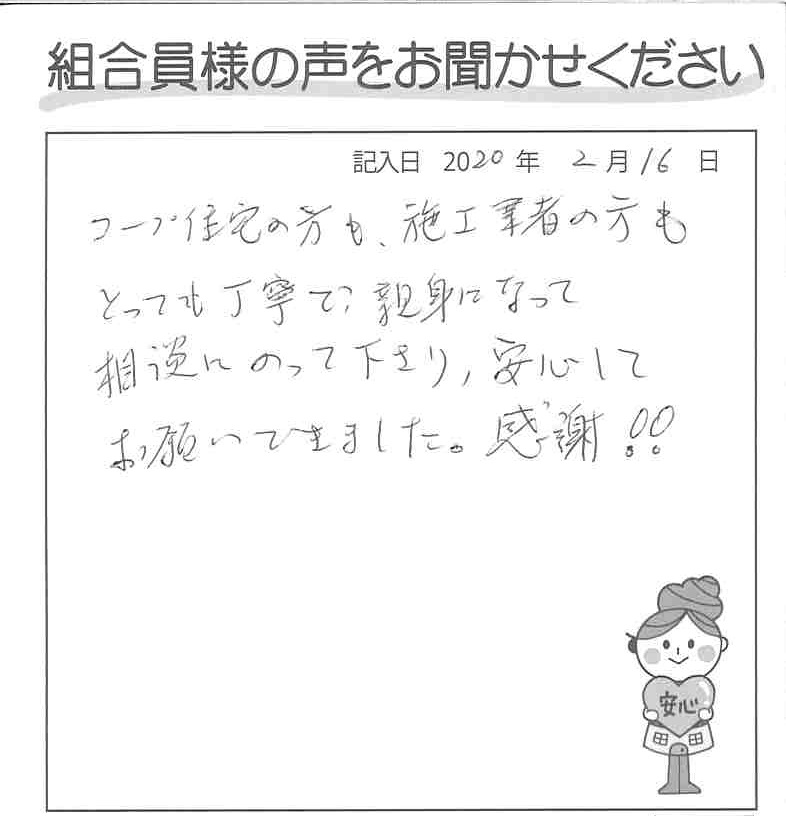 組合員様の声をお聞かせください
記入日 2020年 2月16日
コープ住宅の方も、施工業者の方も
とっても丁寧で親身になって
相談にのって下さり、安心して
お願いできました。感謝!!
安心